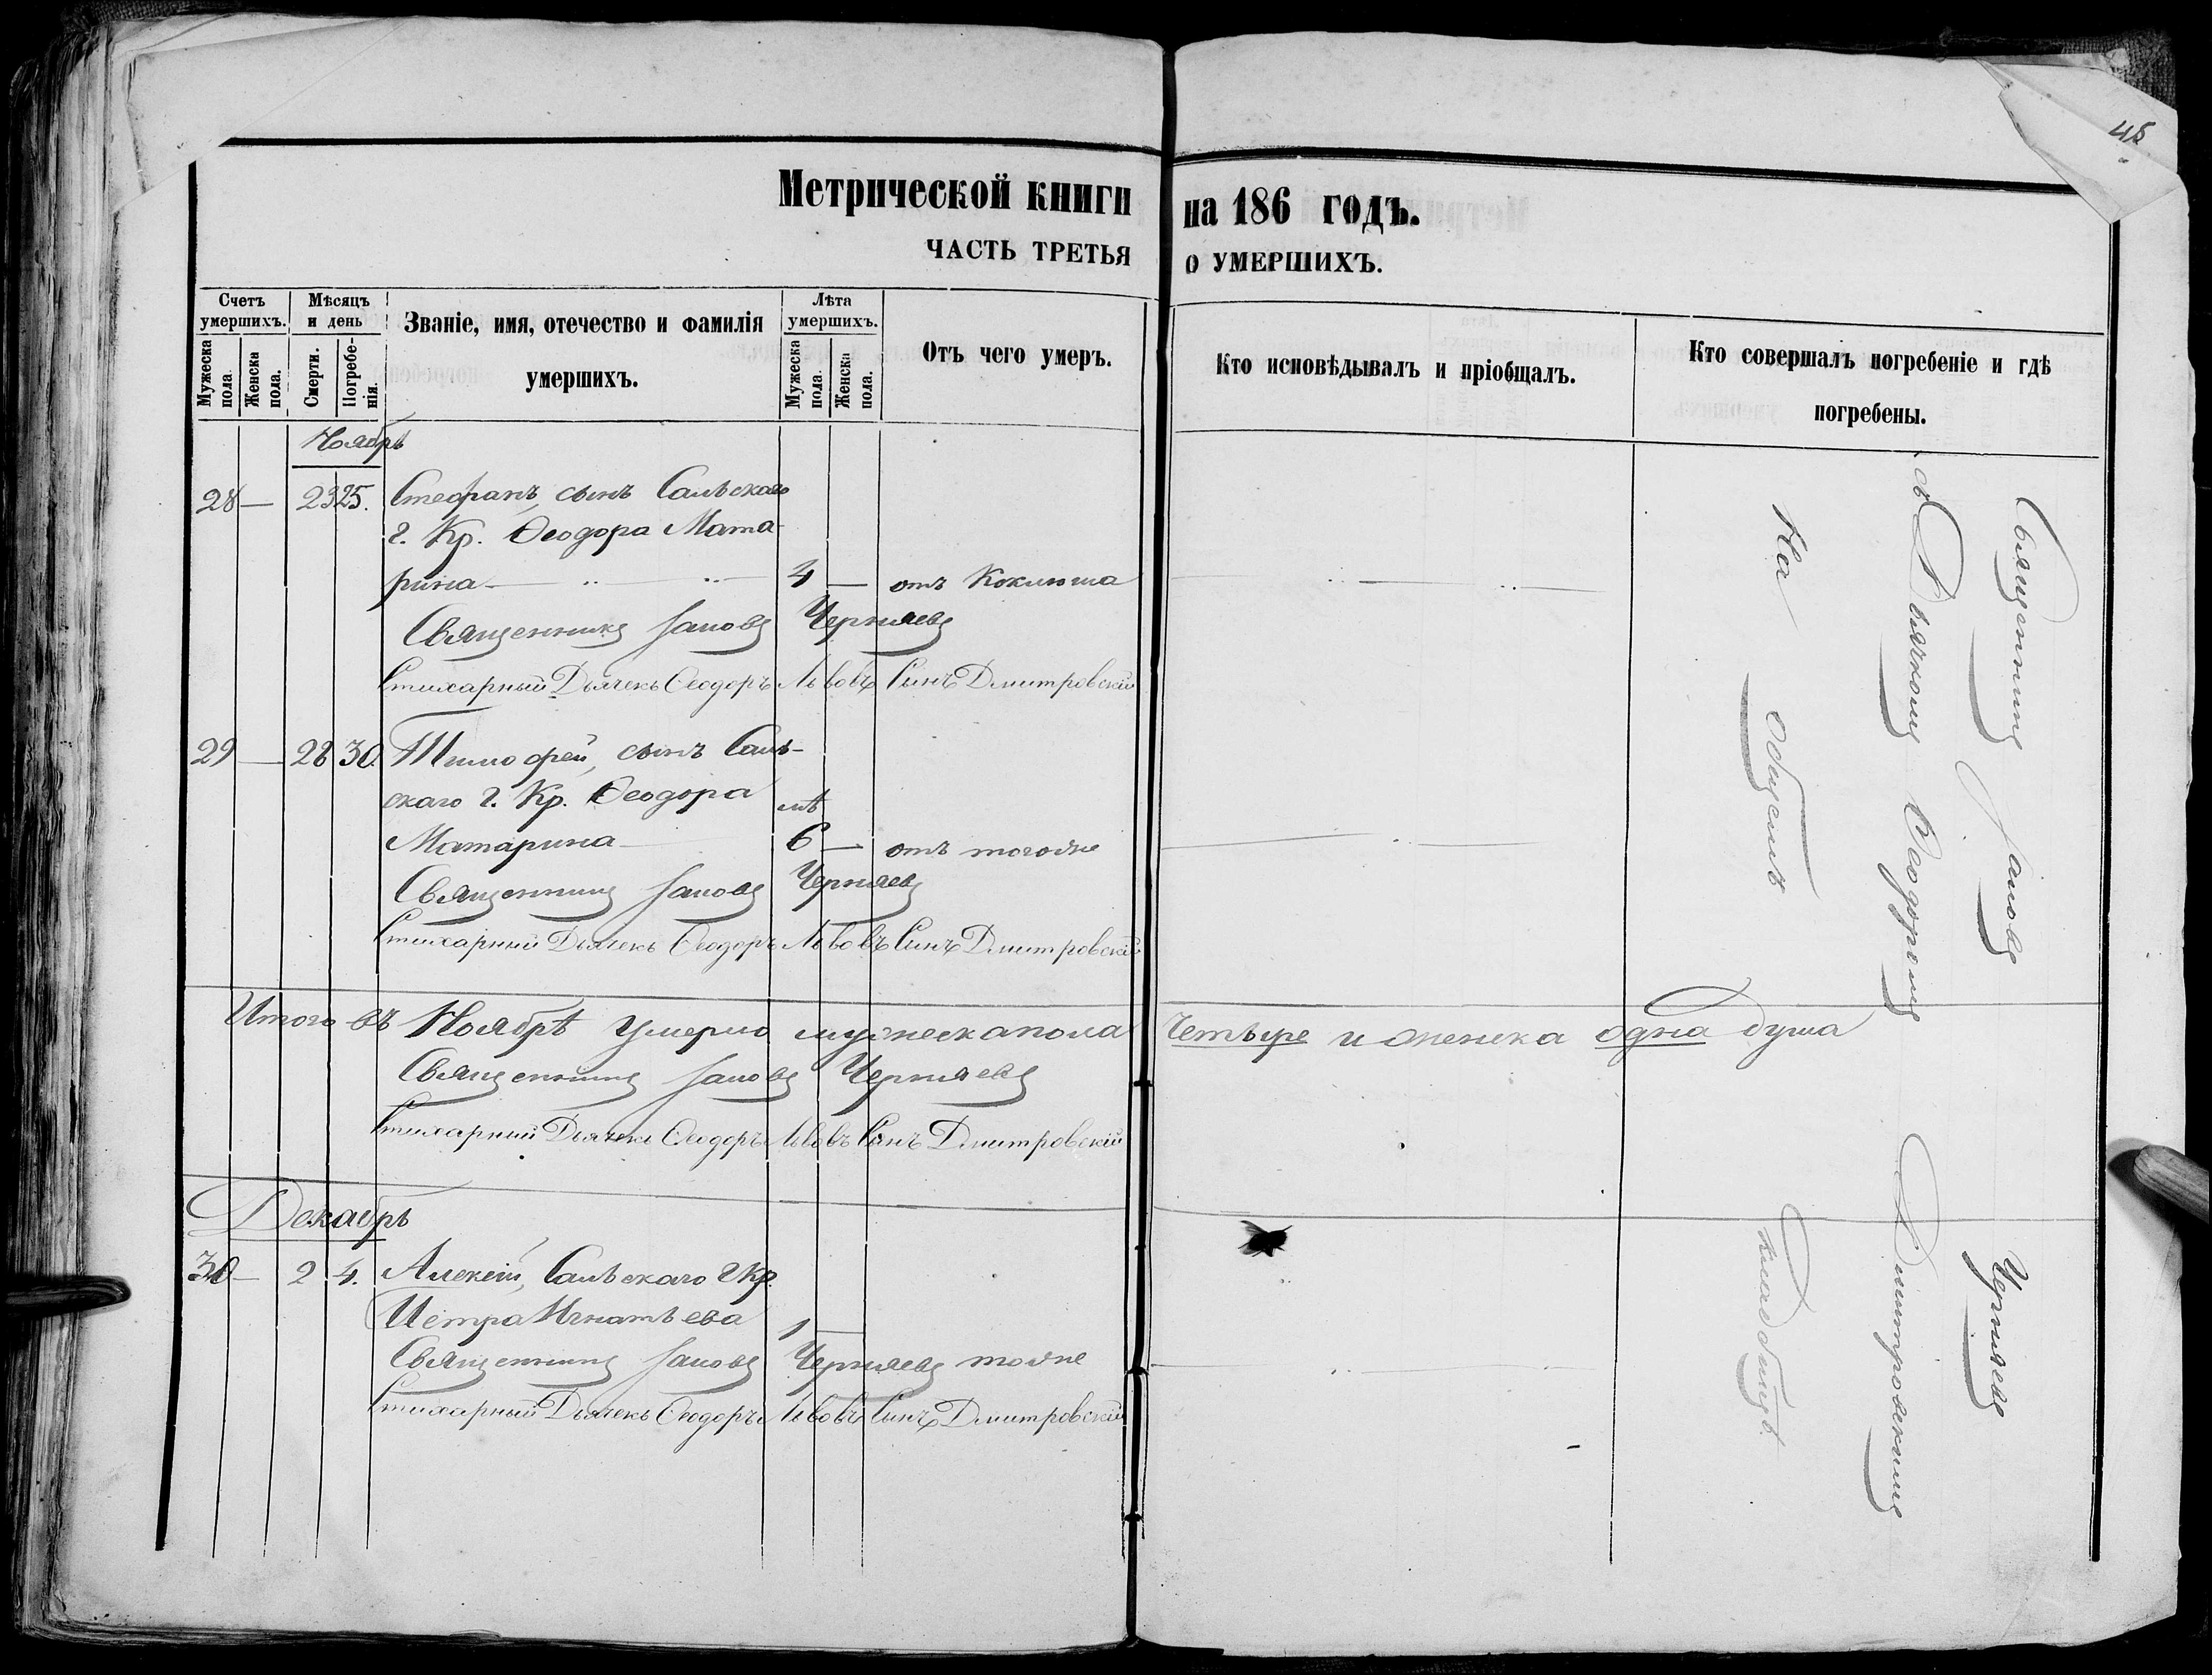 45
Метрической книги на 186 годъ.
ЧАСТЬ ТРЕТЬЯ о УМЕРШИХЪ.
Счетъ умершихъ.
Мужеска пола.
Женска пола.
Мѣсяцъ и день
Смерти.
Погребенія.
Званіе, имя, отечество и фамилія
умершихъ.
Лѣта умершихъ.
Мужеска пола.
Женска пола.
Отъ чего умеръ.
Кто исповѣдывалъ и пріобщалъ.
Кто совершалъ погребеніе и гдѣ
погребены.
Ноябрь
28 — 23 25. Стефанъ, сынъ Сальскаго
г. Кр. Ѳеодора Мата-
рина — 4 — отъ Коклюша
Священникъ Іаковъ Черняевъ
Стихарный Дьячекъ Ѳеодоръ Львовъ Сынъ Дмитровскій
29 — 28 30. Тимофей, сынъ Саль-
скаго г. Кр. Ѳеодора мѣ
Матарина — 6 — отъ тогоже
Священникъ Іаковъ Черняевъ
Стихарный Дьячекъ Ѳеодоръ Львовъ Сынъ Дмитровскій
Итого въ Ноябрѣ умерло мужеска пола четыре и женска одна душа
Священникъ Іаковъ Черняевъ
Стихарный Дьячекъ Ѳеодоръ Львовъ Сынъ Дмитровскій
Декабрь
30 — 2 4. Алексій, Сальскаго г Кр.
Петра Игнатьева 1 —
Священникъ Іаковъ Черняевъ тоже
Стихарный Дьячекъ Ѳеодоръ Львовъ Сынъ Дмитровскій
Священникъ Іаковъ Черняевъ
съ Дьячкомъ Ѳеодоромъ Дмитровскимъ
На общемъ кладбищѣ.